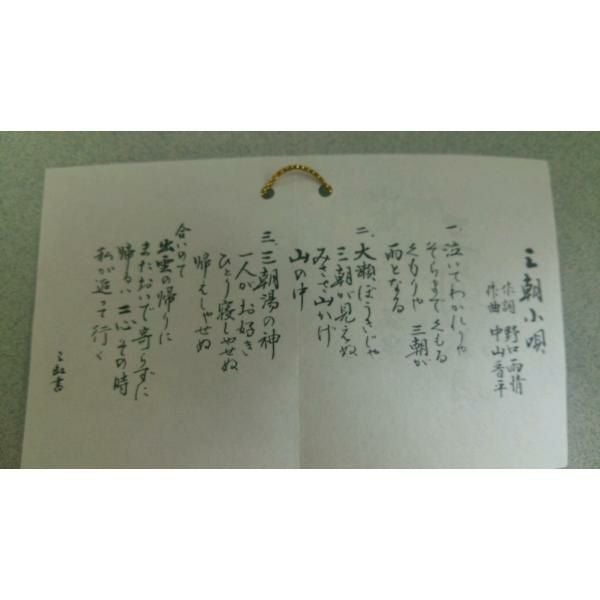 三朝小唄
作詞 野口雨情
作曲 中山晋平
一、泣いてわかれりゃ
そらまでくもる
くもりゃ 三朝が
雨となる
二、大瀬ぼうきじゃ
三朝が見えぬ
みささ山かげ
山の中
三、三朝湯の神
一人がお好き
ひとり寝しゃせぬ
帰えしゃせぬ
合いのて
出雲の帰りに
またおいで寄らずに
帰るは 二心その時
私が追って行く
書